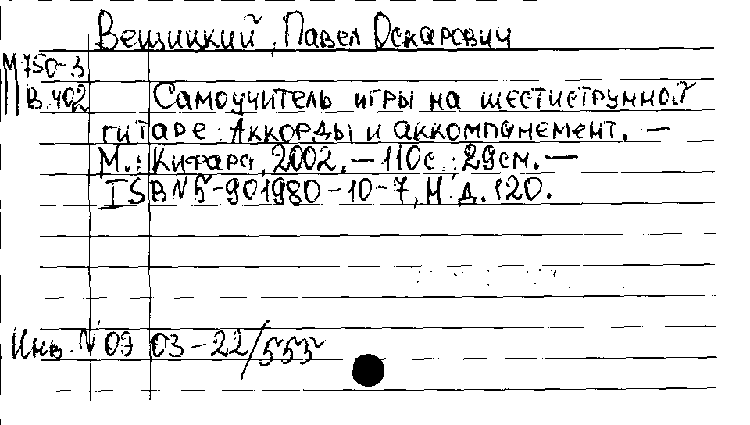 Вещицкий, Павел Оскарович
М 750-3
В.402
Самоучитель игры на шестиструнной
гитаре: Аккорды и аккомпанемент. —
М.: Кифара, 2002. — 110с.; 29см. —
ISBN 5-901980-10-7, Н.д. 120.
Инв. N 09 03-22/555